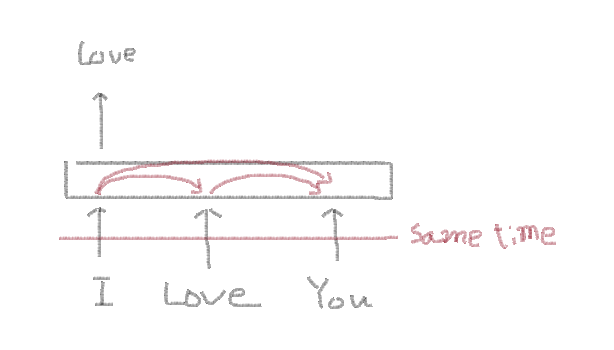 Love
Same time
I Love You